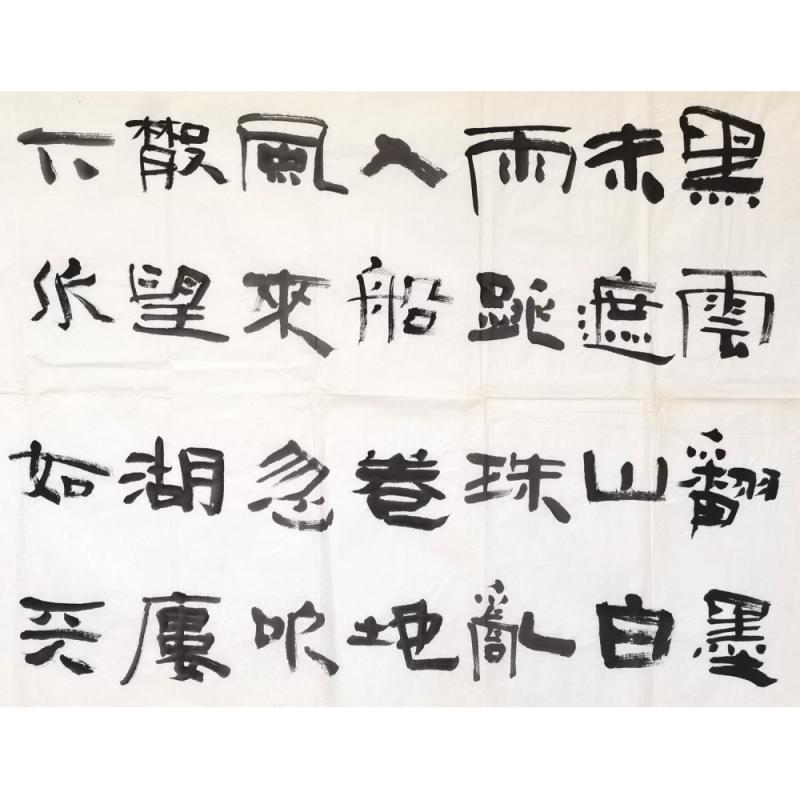 黑雲翻墨
未遮山白
雨跳珠亂
入船卷地
風來忽吹
散望湖廔
下水如天